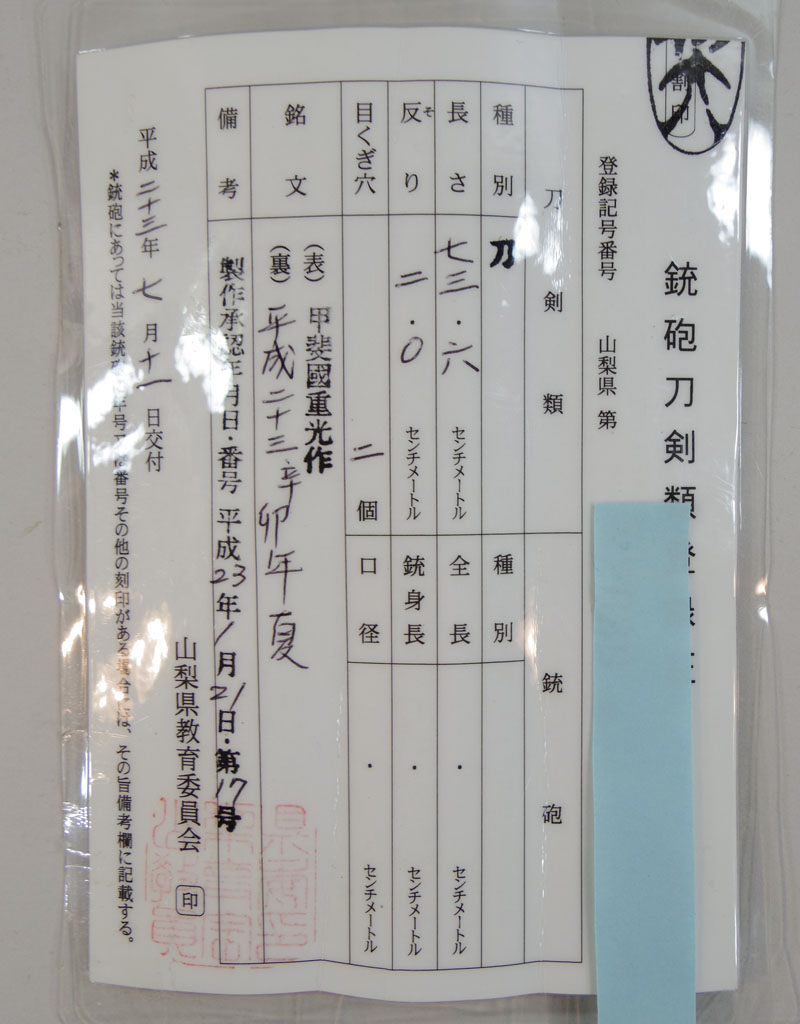 割印
銃砲刀剣類登録証
登録記号番号 山梨県 第
刀剣類 銃砲
種別 刀 種別
長さ 七三・六 センチメートル 全長 ・ センチメートル
反り そ 二・〇 センチメートル 銃身長 ・ センチメートル
目くぎ穴 二 個 口径 ・ センチメートル
銘文 (表) 甲斐國重光作
(裏) 平成二十三辛卯年夏
備考 製作承認年月日・番号 平成23年1月21日・第17号
山梨県教育委員会 印
平成二十三年七月十一日交付
*銃砲にあっては当該銃砲の番号その他の刻印がある場合には、その旨備考欄に記載する。